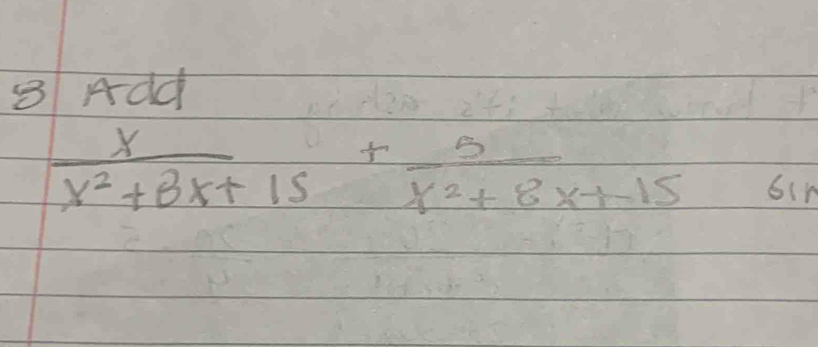 8 Add
x/(x²+8x+15) + 5/(x²+8x+15)